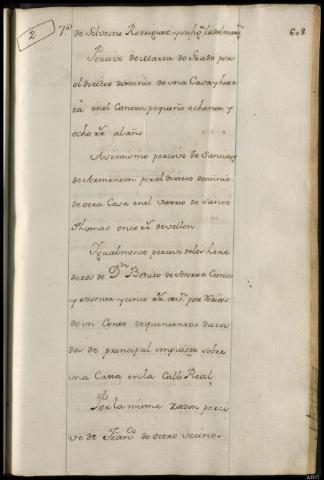 2
608
7ª de Silvestre Rodriguez y su hª
Percive de Maria de Prado por
el directo dominio de una Casa y huer
ta en el Canton pequeño ochenta y
ocho rr. al año
Assimismo percive de Santiago
de Armenton por el directo dominio
de otra Casa en el varrio de Santo
Thomas once rr. de vellon
Ygualmente percive de los here
deros de Dn. Benito de
y sesenta y cinco rr. por reditos
de un Censo de quinientos duca
dos de principal impuesto sobre
una Cassa en la Calle Real
Por la misma razon perci
ve de Franco. de Otero vecino